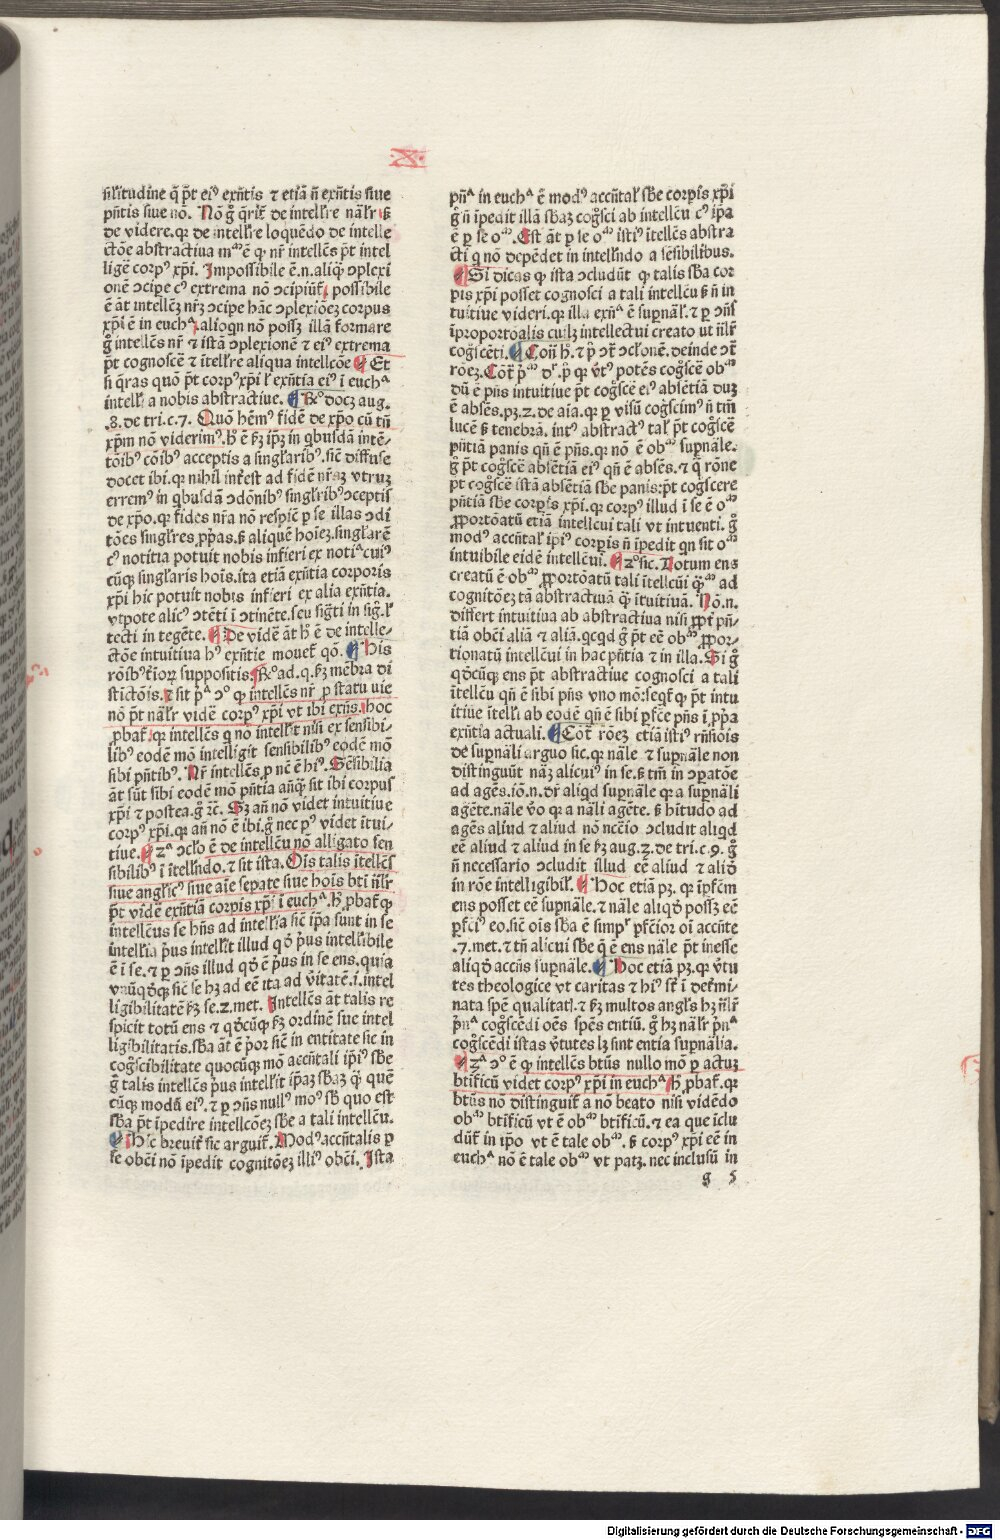 .X.
silitudine q̄ p̄t eiꝰ exn̄tis ⁊ etiā n̄ exn̄tis siue
pn̄tis siue nō. Nō ḡ q̄rit̄ de intell̄re nāl̄r ſꝫ
de videre. qꝛ de intell̄re loquēdo de intelle
ctōe abstractiua māᵐ ē ꝙ nr̄ intellēs p̄t intel
ligē corpꝰ xp̄i. Impossibile ē.n. aliqḡ ↄplexi
onē ↄcipe cꝰ extrema nō ↄcipiūt̄. possibile
ē āt intellēꝫ nr̄ꝫ ↄcipe hāc ↄplexiōeꝫ corpus
xp̄i ē in euchᵃ. alioqn nō possꝫ illā formare
ḡ intellēs nr̄ ⁊ istā ↄplexionē ⁊ eiꝰ extrema
p̄t cognoscē ⁊ ītell̄re aliqua intellcōe ¶ Et
si q̄ras quō p̄t corpꝰ xp̄i l̄ exn̄tia eiꝰ ī euchᵃ
intell̄i a nobis abstractiue. ¶ R̄ᵒ docꝫ aug.
.8. de tri. c. 7. Quō hēmꝰ fidē de xp̄o cū tn̄
xp̄m nō viderimꝰ. h̄ ē ẜꝫ ip̄ꝫ in qbusdā intē-
tōibꝰ cōibꝰ acceptis a singlaribꝰ. sic̄ diffuse
docet ibi. qꝛ nihil int̄est ad fidē nr̄aꝫ vtruꝫ
erremꝰ in qbusdā ↄdōnibꝰ singl̄ribꝰ ↄceptis
de xp̄o. qꝛ fides nr̄a nō respic̄ ꝑ se illas ↄdi
tōes singl̄res ꝓpas. ſꝫ aliquē hoīeꝫ. singlarē
cꝰ notitia potuit nobis infieri ex notiᵃ cuiꝰ
cūqꝫ singlaris hois. ita etiā exn̄tia corporis
xp̄i hic potuit nobis infieri ex alia exn̄tia.
vtpote alicꝰ ↄtēti ī ↄtinēte. seu sigti in sig. l̄
tecti in tegēte. ¶ De vidē āt h̄ ē de intelle-
ctōe intuitiua hꝰ exn̄tie mouet̄ qō. ¶ His
rōibꝰ t̄ioꝝ suppositis. R̄ᵒ ad .q. ẜꝫ mēbra di
stictōis. ⁊ sit p̄ᵃ ↄᵒ ꝙ intellēs nr̄ ꝓ statu vie
nō p̄t nāl̄r vidē corpꝰ xp̄i vt ibi exn̄s. hoc
ꝓbat̄. qꝛ intellēs q nō intell̄it nisi ex sensibi-
libꝰ eodē mō intelligit sensibilibꝰ eodē mō
sibi pn̄tibꝰ. Nr̄ intellēs ꝓ nc̄ ē hiꝰ. Sēsibilia
āt sūt sibi eodē mō pn̄tia anq̄ sit ibi corpus
xp̄i ⁊ postea. ḡ ⁊c̄. Sꝫ an̄ nō videt intuitiue
corpꝰ xp̄i. qꝛ an̄ nō ē ibi. ḡ nec pꝰ videt ītui-
tiue. ¶ 2ᵃ ↄcl̄o ē de intellēu nō alligato sen
sibilibꝰ ī ītell̄ndo. ⁊ sit ista. Ois talis ītellēs
siue anglicꝰ siue aīe sepate siue hois bti nāl̄r
p̄t vidē exn̄tiā corpis xp̄i ī euchᵃ. h̄ ꝓbat̄ qꝛ
intellēus se hn̄s ad intell̄ia sic̄ ip̄a sunt in se
intell̄ia p̄us intell̄it illud qō p̄us intell̄ibile
ē ī se. ⁊ ꝑ ↄn̄s illud qō ē p̄us in se ens. quia
vnūqōqꝫ sic̄ se hꝫ ad eē ita ad v̄itatē. ī. intel
ligibilitatē ẜꝫ se. 2. met. Intellēs āt talis re
spicit totū ens ⁊ qōcūqꝫ ẜꝫ ordinē sue intel
ligibilitatis. sb̄a āt ē p̄or sic̄ in entitate sic in
cogscibilitate quocūqꝫ mō accn̄tali ip̄iꝰ sbe
ḡ talis intellēs p̄us intell̄it ip̄aꝫ sb̄aꝫ q̄ quē
cūqꝫ modū eiꝰ. ⁊ ꝑ ↄn̄s nullꝰ moꝰ sb quo est
sb̄a p̄t īpedire intellcōeꝫ sbe a tali intellēu.
¶ Hic breuit̄ sic arguit̄. Modꝰ accn̄talis ꝑ
se obc̄i nō īpedit cognitōeꝫ illiꝰ obc̄i. Ista
pn̄ᵃ in euchᵃ ē modꝰ accn̄tal̄ sbe corpis xp̄i
ḡ n̄ īpedit illā sb̄aꝫ cogsci ab intellēu cꝰ ip̄a
ē ꝑ se oᵐ. Est āt ꝑ se oᵐ istiꝰ ītellēs abstra
cti q nō depēdet in intell̄ndo a sēsibilibus.
¶ Si dicas ꝙ ista ↄcludūt ꝙ talis sb̄a cor
pis xp̄i posset cognosci a tali intellēu ſꝫ n̄ in
tuitiue videri. qꝛ illa exn̄ᵃ ē supnāl̄. ⁊ ꝑ ↄn̄s
īproportoalis cuilꝫ intellectui creato ut nāl̄r
cogscēti. ¶ Con̄ h̄. ⁊ p̄ ↄt̄ ↄcl̄onē. deinde ↄt̄
rōeꝫ. Cōt̄ p̄ᵐ dr̄. p̄ qꝛ v̄tꝰ potēs cogscē obᵐ
dū ē pn̄s intuitiue p̄t cogscē eiꝰ absētiā duꝫ
ē absēs. pꝫ. 2. de aīa. qꝛ ꝑ visū cogscimꝰ n̄ tm̄
lucē ſꝫ tenebrā. intꝰ abstractꝰ tal̄ p̄t cogscē
pn̄tiā panis qn̄ ē pn̄s. qꝛ nō ē obᵐ supnāle.
ḡ p̄t cogscē absētiā eiꝰ qn̄ ē absēs. ⁊ q̄ rōne
pt cogscē istā absētiā sbe panis: p̄t cogscere
pn̄tiā sbe corpis xp̄i. qꝛ corpꝰ illud ī se ē oᵐ
ꝓportōatū etiā intellcui tali vt intuenti. ḡ
modꝰ accn̄tal̄ ip̄iꝰ corpis n̄ īpedit qn sit oᵐ
intuibile eidē intellēui. ¶ 2ᵒ sic. Notum ens
creatū ē obᵐ ꝓportōatū tali ītellēui q̄ᵐ ad
cognitōeꝫ tā abstractiuā q̄ ītuitiuā. Nō .n.
differt intuitiua ab abstractiua nisi ꝓpt̄ pn̄-
tiā obc̄i aliā ⁊ aliā. qcqd ḡ p̄t eē obᵐ ꝓpor-
tionatū intellēui in hac pn̄tia ⁊ in illa. Si ḡ
qōcūqꝫ ens p̄t abstractiue cognosci a tali
ītellēu qn̄ ē sibi pn̄s vno mō: seqt̄ ꝙ p̄t intu
itiue ītell̄i ab eodē qn̄ ē sibi ꝑfc̄e pn̄s ī ꝓp̄a
exn̄tia actuali. ¶ Cōt̄ rōeꝫ etiā istiꝰ rn̄siois
de supnāli arguo sic. qꝛ nāle ⁊ supnāle non
distinguūt nāꝫ alicuiꝰ in se. ſꝫ tm̄ in ↄpatōe
ad agēs. iō .n. dr̄ aliqd supnāle qꝛ a supnāli
agēte. nāle v̄o qꝛ a nāli agēte. ſꝫ hītudo ad
agēs aliud ⁊ aliud nō ncc̄io ↄcludit aliqd
eē aliud ⁊ aliud in se ẜꝫ aug. 2. de tri. c. 9. ḡ
n̄ necessario ↄcludit illud eē aliud ⁊ aliō
in rōe intelligibil̄. ¶ Hoc etiā pꝫ. qꝛ īpfc̄m
ens posset eē supnāle. ⁊ nāle aliqō possꝫ eē
ꝑfc̄iꝰ eo. sic̄ ois sb̄a ē simpl̄ ꝑfc̄ior oi accn̄te
.7. met. ⁊ tn̄ alicui sbe q̄ ē ens nāle p̄t inesse
aliqō accn̄s supnāle. ¶ Hoc etiā pꝫ. qꝛ v̄tu
tes theologice vt caritas ⁊ hiꝰ st̄ ī det̄mi-
nata spē qualitatꝭ. ⁊ ẜꝫ multos angl̄s hꝫ nāl̄r
p̄nᵃ cogscēdi oēs spēs entiū. ḡ hꝫ nāl̄r p̄nᵃ
cogscēdi istas v̄tutes lꝫ sint entia supnālia.
¶ 2ᵃ ↄᵒ ē ꝙ intellēs btūs nullo mō ꝑ actuꝫ
btificū videt corpꝰ xp̄i in euchᵃ. h̄ ꝓbat̄. qꝛ
btūs nō distinguit̄ a nō beato nisi vidēdo
obᵐ btificū vt ē obᵐ btificū. ⁊ ea que iclu
dūt̄ in ip̄o vt ē tale obᵐ. ſꝫ corpꝰ xp̄i eē in
euchᵃ nō ē tale obᵐ vt patꝫ. nec inclusū in
g 5
Digitalisierung gefördert durch die Deutsche Forschungsgemeinschaft - DFG